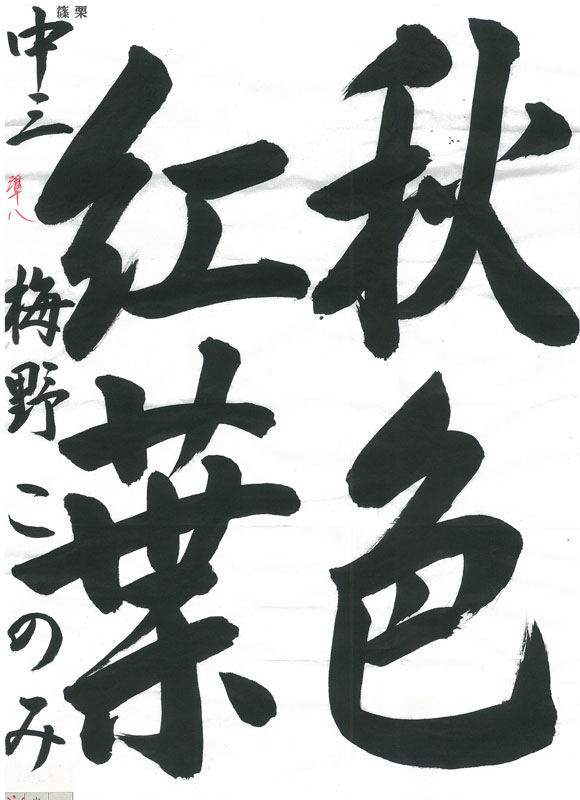 秋色
紅葉
篠栗
中三 準八 梅野このみ